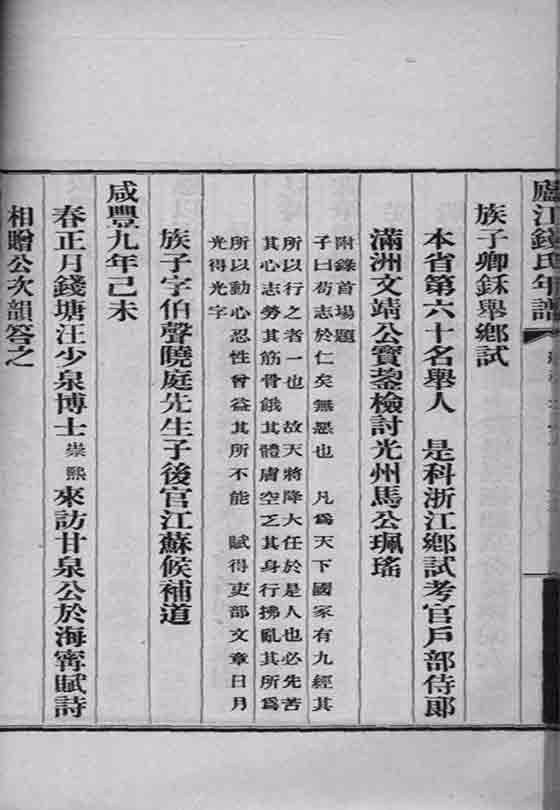 廬江錢氏年譜
族子卿鉌舉鄕試
本省第六十名舉人　是科浙江鄕試考官戶部侍郞
滿洲文靖公寶鋆檢討光州馬公珮瑤
附錄首場題
子曰苟志於仁矣無惡也　凡爲天下國家有九經其
所以行之者一也　故天將降大任於是人也必先苦
其心志勞其筋骨餓其體膚空乏其身行拂亂其所爲
所以動心忍性曾益其所不能　賦得吏部文章日月
光得光字
族子字伯聲曉庭先生子後官江蘇候補道
咸豐九年己未
春正月錢塘汪少泉博士崇熙來訪甘泉公於海甯賦詩
相贈公次韻答之